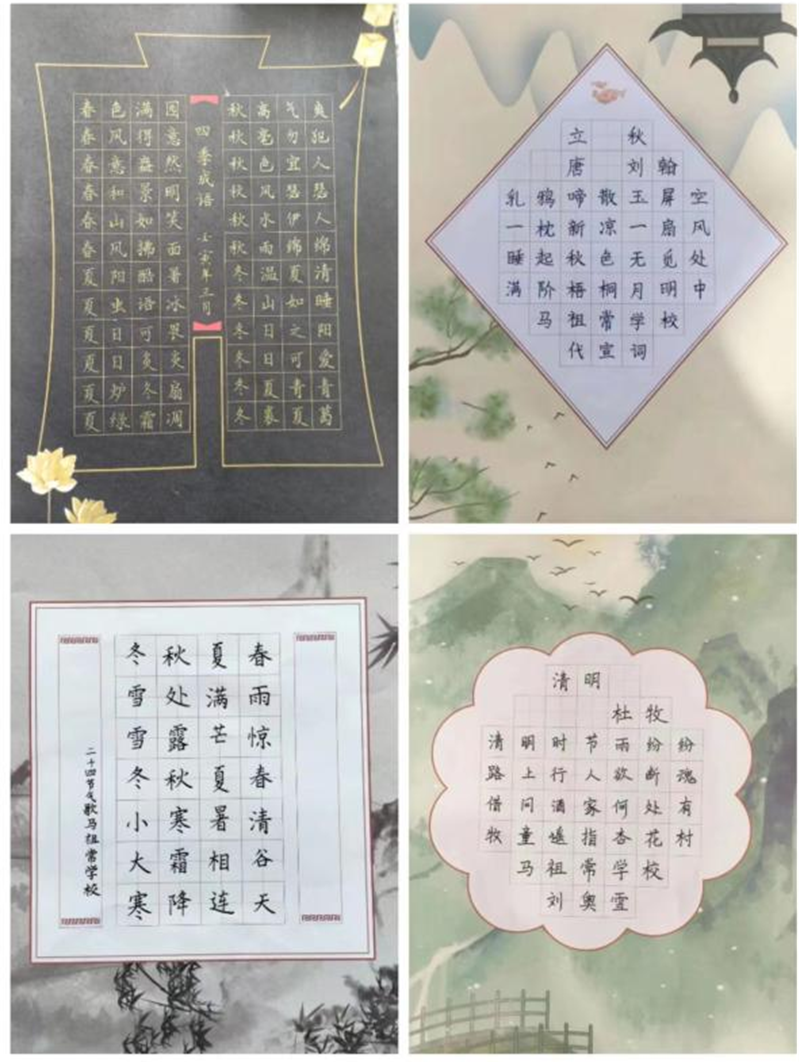 春色满园
春风得意
春意盎然
春和景明
春山如笑
春风拂面
夏阳酷暑
夏虫语冰
夏日可畏
夏日炎炎
夏炉冬扇
夏绿霜凋
四季成语 壬寅年三月
秋高气爽
秋毫勿犯
秋色宜人
秋风瑟瑟
秋水伊人
秋雨绵绵
冬温夏清
冬山如睡
冬日之阳
冬日可爱
冬夏青青
冬裘夏葛
立秋
唐 刘翰
乳鸦啼散玉屏空
一枕新凉一扇风
睡起秋色无觅处
满阶梧桐月明中
马祖常学校
代宣词
春雨惊春清谷天
夏满芒夏暑相连
秋处露秋寒霜降
冬雪雪冬小大寒
二十四节气歌马祖常学校
清明
杜牧
清明时节雨纷纷
路上行人欲断魂
借问酒家何处有
牧童遥指杏花村
马祖常学校
刘奥雪